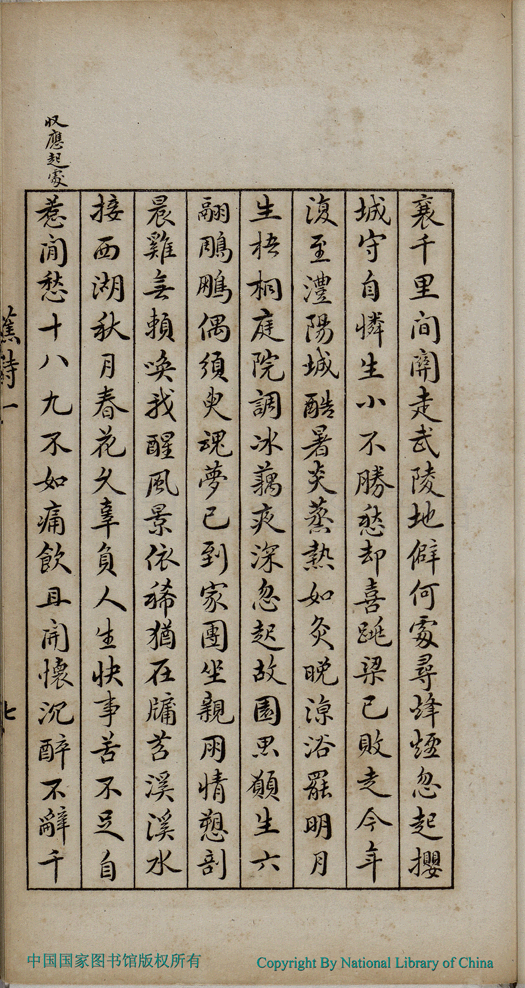 襄千里间關走武陵地僻何處尋烽煙忽起攖
城守自憐生小不勝愁却喜跳梁已敗走今年
復至澧陽城酷暑炎蒸熱如灸晚涼浴罷明月
生梧桐庭院調冰藕夜深忽起故園思願生六
翮鵰鵬偶須臾魂夢已到家團坐親朋情懇剖
晨雞無賴喚我醒風景依稀猶在牖苕溪溪水
接西湖秋月春花久辜負人生快事苦不足自
惹閒愁十八九不如痛飲且開懷沉醉不辭千
収應起處
蕉詩一
七
中国国家图书馆版权所有
Copyright By National Library of China